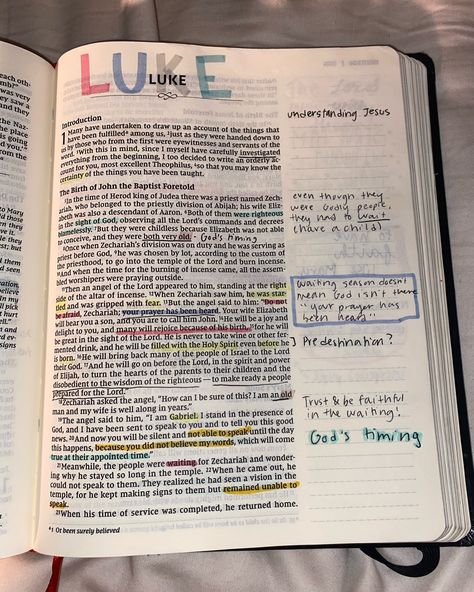 LUKE
LUKE
Introduction
1 Many have undertaken to draw up an account of the things
that have been fulfilled among us, ²just as they were handed down to
us by those who from the first were eyewitnesses and servants of the
word. ³With this in mind, since I myself have carefully investigated
everything from the beginning, I too decided to write an orderly ac-
count for you, most excellent Theophilus, ⁴so that you may know the
certainty of the things you have been taught.
The Birth of John the Baptist Foretold
⁵In the time of Herod king of Judea there was a priest named Zech-
ariah, who belonged to the priestly division of Abijah; his wife Eliz-
abeth was also a descendant of Aaron. ⁶Both of them were righteous
in the sight of God, observing all the Lord's commands and decrees
blamelessly. ⁷But they were childless because Elizabeth was not able
to conceive, and they were both very old. God's timing
⁸Once when Zechariah's division was on duty and he was serving as
priest before God, ⁹he was chosen by lot, according to the custom of
the priesthood, to go into the temple of the Lord and burn incense.
¹⁰And when the time for the burning of incense came, all the assem-
bled worshipers were praying outside.
¹¹Then an angel of the Lord appeared to him, standing at the right
side of the altar of incense. ¹²When Zechariah saw him, he was star-
tled and was gripped with fear. ¹³But the angel said to him: "Do not
be afraid, Zechariah; your prayer has been heard. Your wife Elizabeth
will bear you a son, and you are to call him John. ¹⁴He will be a joy and
delight to you, and many will rejoice because of his birth, ¹⁵for he will
be great in the sight of the Lord. He is never to take wine or other fer-
mented drink, and he will be filled with the Holy Spirit even before he
is born. ¹⁶He will bring back many of the people of Israel to the Lord
their God. ¹⁷And he will go on before the Lord, in the spirit and power
of Elijah, to turn the hearts of the parents to their children and the
disobedient to the wisdom of the righteous — to make ready a people
prepared for the Lord."
¹⁸Zechariah asked the angel, "How can I be sure of this? I am an old
man and my wife is well along in years."
¹⁹The angel said to him, "I am Gabriel. I stand in the presence of
God, and I have been sent to speak to you and to tell you this good
news. ²⁰And now you will be silent and not able to speak until the day
this happens, because you did not believe my words, which will come
true at their appointed time."
²¹Meanwhile, the people were waiting for Zechariah and wonder-
ing why he stayed so long in the temple. ²²When he came out, he
could not speak to them. They realized he had seen a vision in the
temple, for he kept making signs to them but remained unable to
speak.
²³When his time of service was completed, he returned home.
ᵃ1 Or been surely believed
understanding Jesus
even though they
were Godly people,
they had to wait
(have a child)
waiting season doesn't
mean God isn't there
"your prayer has
been heard"
Predestination?
Trust & be faithful
in the waiting!
God's timing